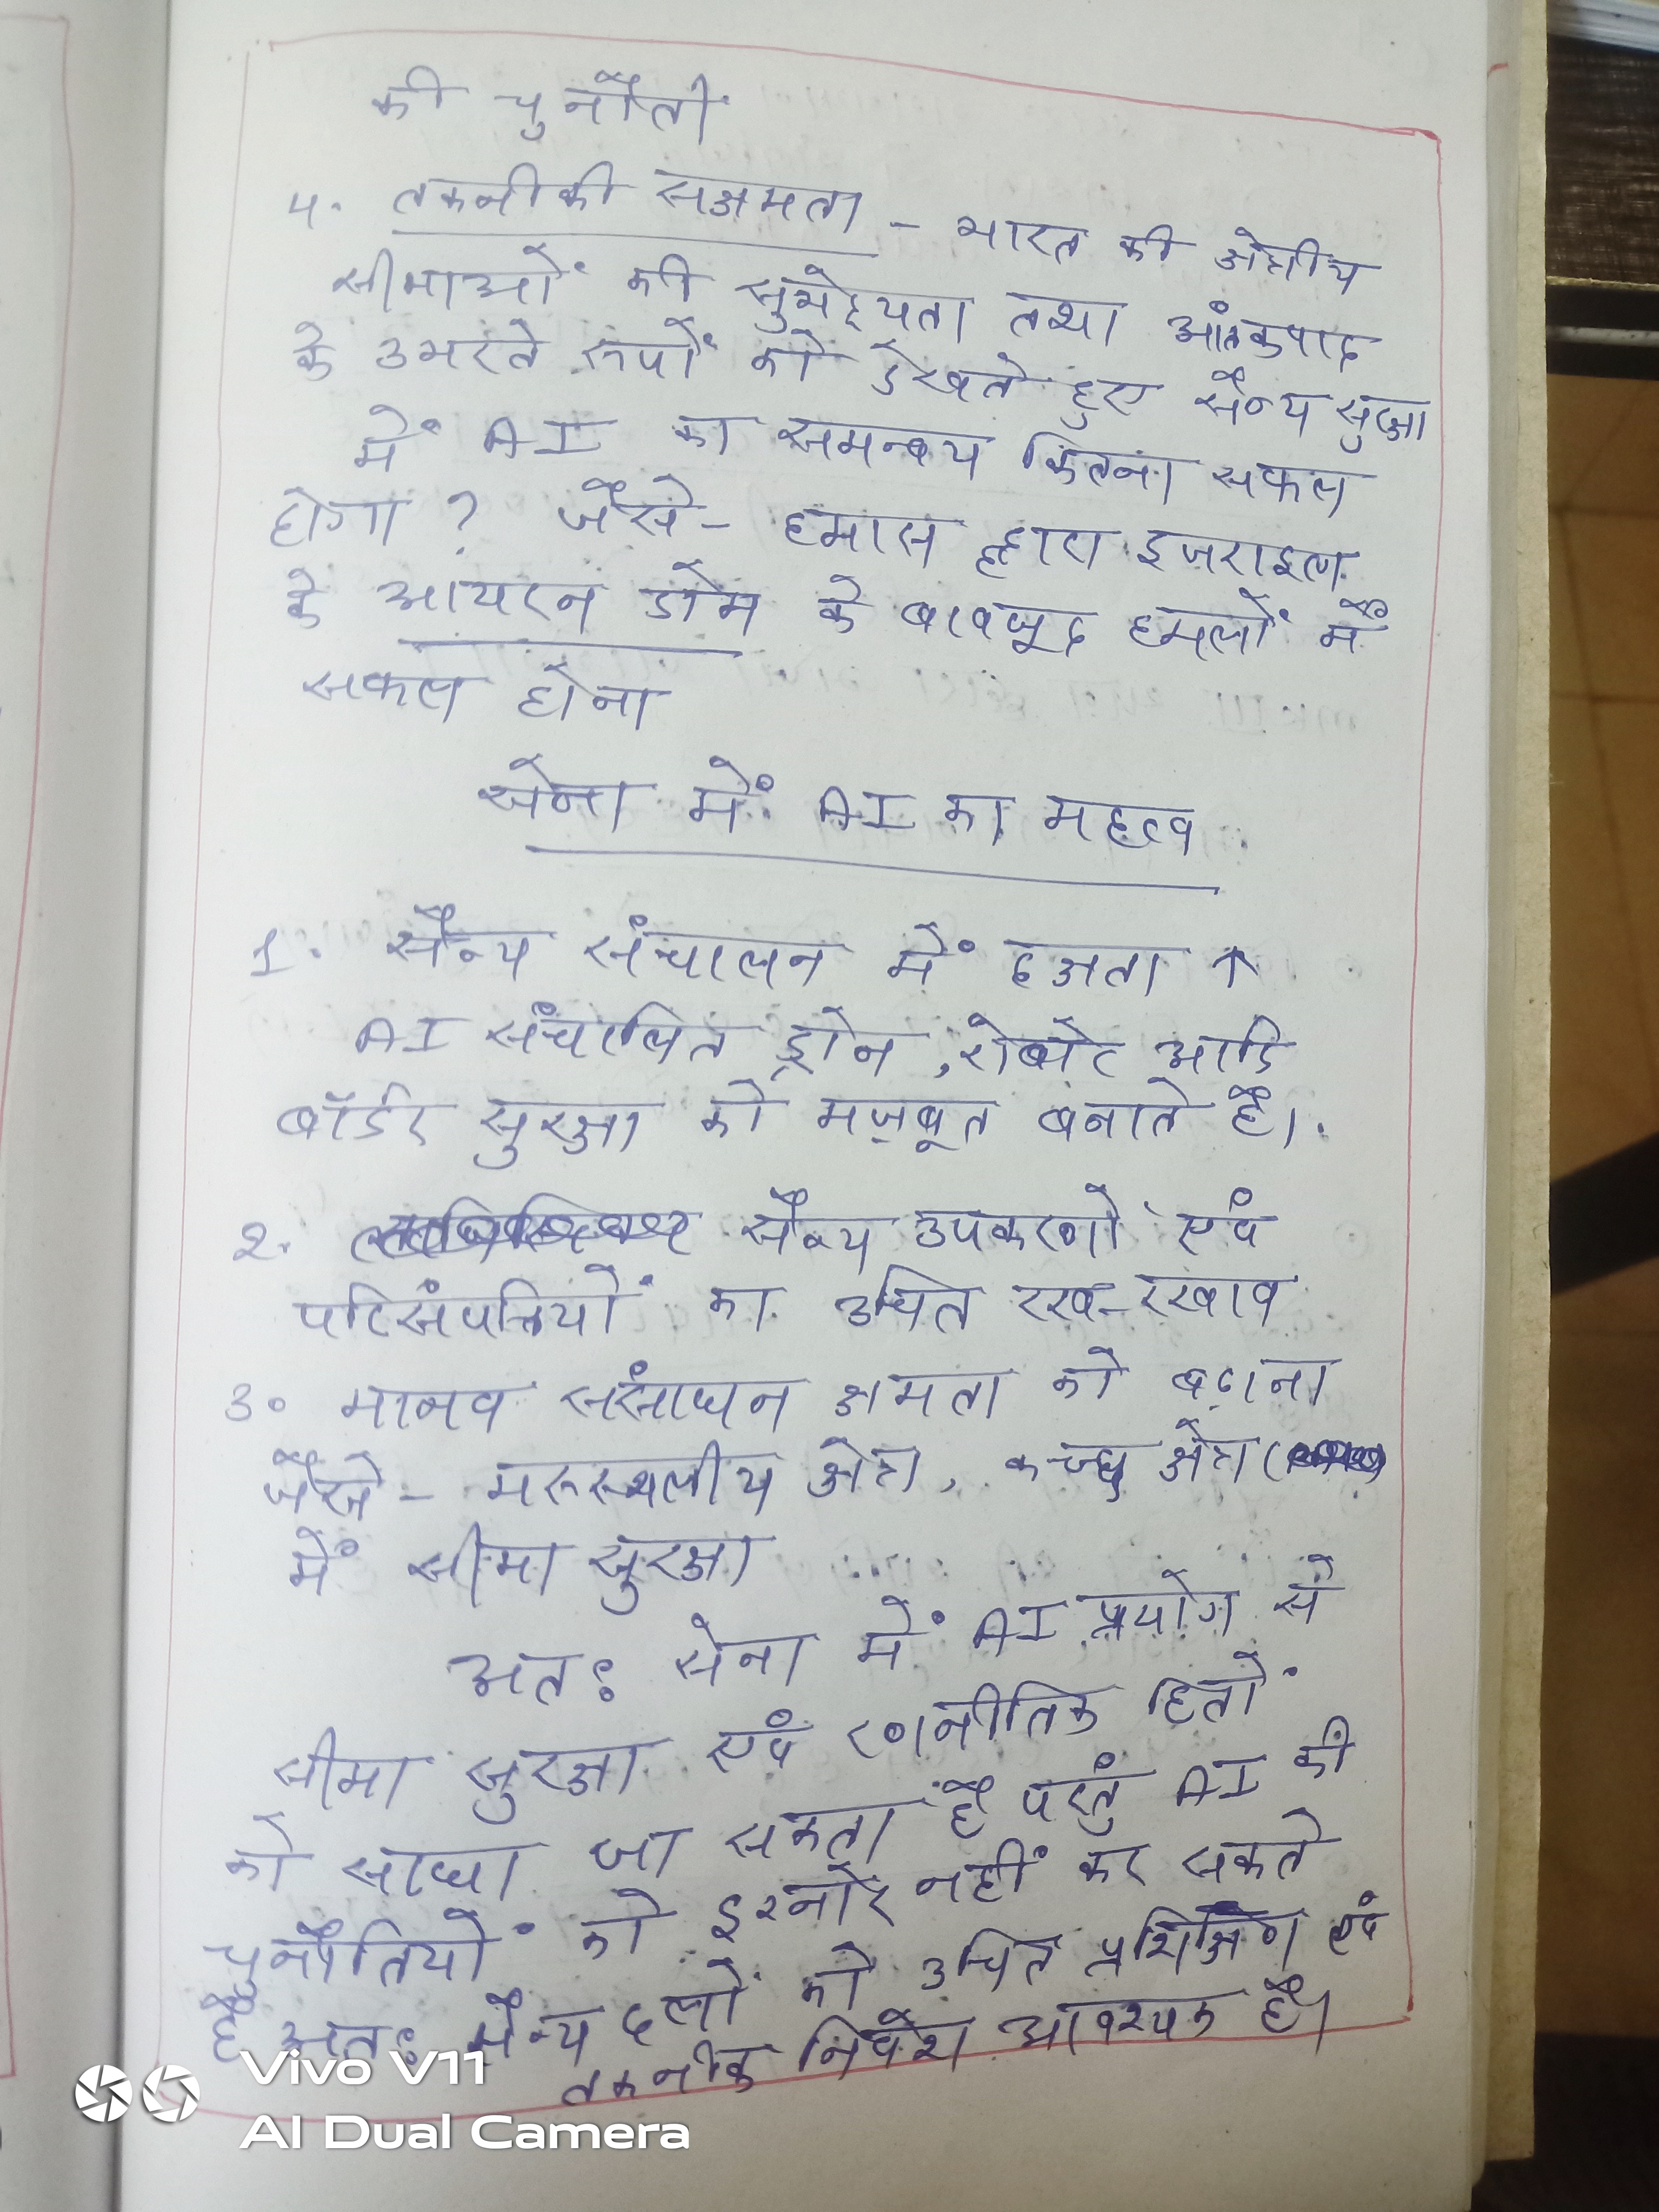 की चुनौती
4. तकनीकी सक्षमता - भारत की क्षेत्रीय
सीमाओं की सुभेद्यता तथा आंतकवाद
के उभरते रूपों को देखते हुए सैन्य सुरक्षा
में AI का समन्वय कितना सफल
होगा ? जैसे - हमास द्वारा इजराइल
के आयरन डोम के बावजूद हमलों में
सफल होना
सेना में AI का महत्व
1. सैन्य संचालन में दक्षता ↑
AI संचालित ड्रोन, रोबोट आदि
बॉर्डर सुरक्षा को मज़बूत बनाते है।
2. सैन्य उपकरणों एवं
परिसंपत्तियों का उचित रख-रखाव
3. मानव संसाधन क्षमता को बढ़ाना
जैसे - मरुस्थलीय क्षेत्र, कच्छ क्षेत्र
में सीमा सुरक्षा
अतः सेना में AI प्रयोग से
सीमा सुरक्षा एवं रणनीतिक हितों
को साधा जा सकता है परंतु AI की
चुनौतियों को इग्नोर नहीं कर सकते
है अतः सैन्य दलों को उचित प्रशिक्षण एवं
तकनीक निवेश आवश्यक है।
Vivo V11
AI Dual Camera